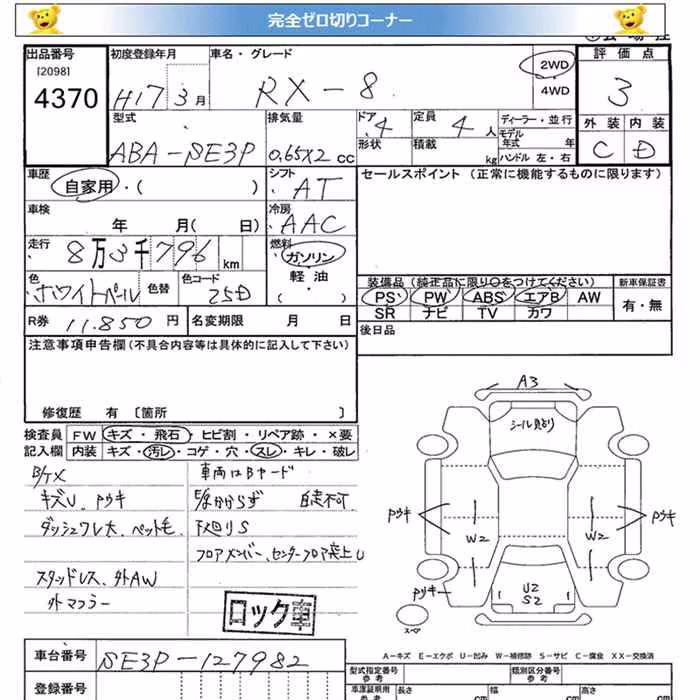 完全ゼロ切りコーナー
出品番号 初度登録年月 車名・グレード 2WD 評価点
[2098]
4370 H17 3月 RX-8 4WD 3
型式 排気量 ドア 定員 ディーラー・並行 外装 内装
ABA-SE3P 0.65X2 CC 4 4人 モデル年式 年 C D
形状 積載 kg ハンドル 左・右
車歴 シフト セールスポイント(正常に機能するものに限ります)
自家用・( ) AT
車検 冷房
年 月( 日) AAC
走行 燃料
8万3千796 km ガソリン
軽・油
色 色替 色コード ( ・ ) 装備品(純正品に限り○をつけてください) 新車保証書
ホワイトパール 25D PS PW ABS エアB AW 有・無
SR ナビ TV カワ
R券 11.850円 名変期限 月 日 後日品
注意事項申告欄(不具合内容等は具体的に記入して下さい)
修復歴 有 [箇所 ]
検査員 FW キズ・飛石・ヒビ割・リペア跡・×要
記入欄 内装 キズ・汚レ・コゲ・穴・スレ・キレ・破レ
B/TX 車両はBヤード
キズU、Pウキ 自走不可
ダッシュワレ大、ペット毛 下廻りS
フロアメンバー、センターフロア突上U
スタッドレス、外AW
外マフラー
ロック車
A3
シール見どり
Pウキ W2 W2 Pウキ
Pリキー U2
S2
スペア
A-キズ E-エクボ U-凹み W-補修跡 S-サビ C-腐食 XX-交換済
車台番号 SE3P-127982
型式指定番号 参考 類別区分番号 参考
登録番号 車庫証明用 参考 長さ cm 幅 cm 高さ cm